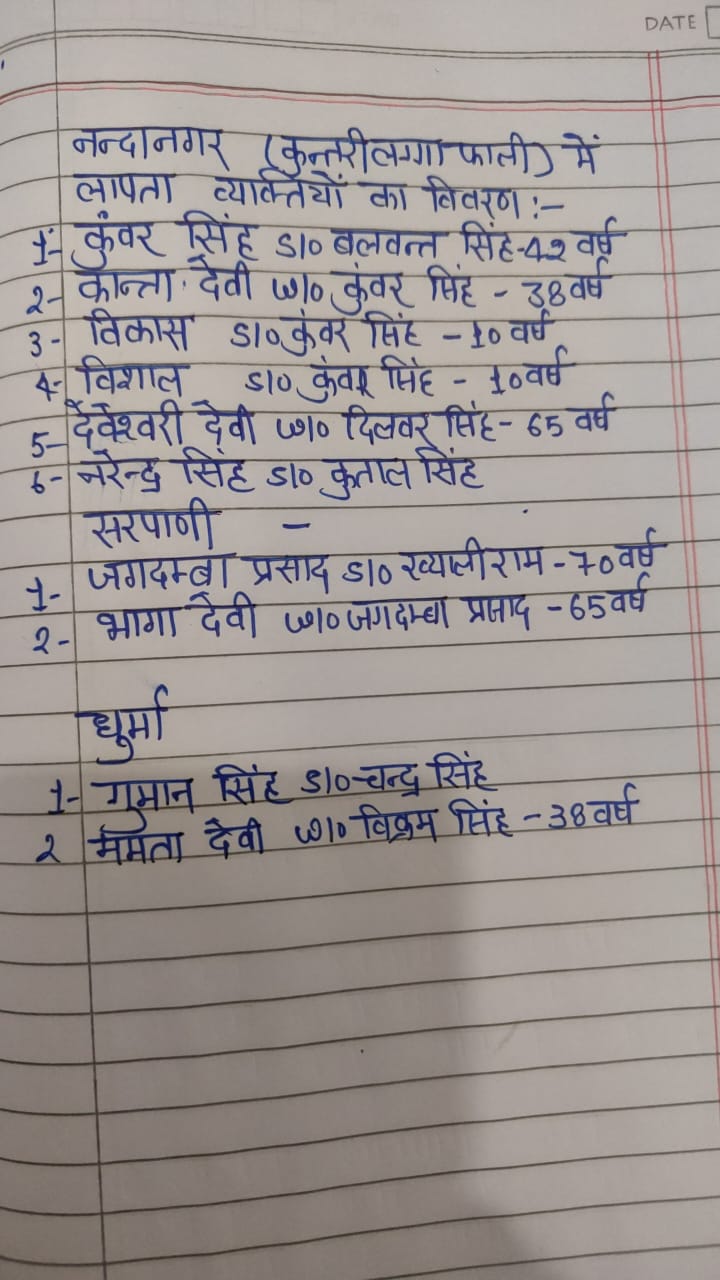 DATE
नन्दानगर (कुन्तरीलग्गा फाली) में
लापता व्यक्तियों का विवरण :-
1- कुंवर सिंह S/o बलवन्त सिंह-42 वर्ष
2- कान्ता देवी W/o कुंवर सिंह - 38 वर्ष
3- विकास S/o कुंवर सिंह - 10 वर्ष
4- विशाल S/o कुंवर सिंह - 10 वर्ष
5- देवेश्वरी देवी W/o दिलवर सिंह - 65 वर्ष
6- नरेन्द्र सिंह S/o कुताल सिंह
सरपाणी -
1- जगदम्बा प्रसाद S/o ख्यालीराम - 70 वर्ष
2- भागा देवी W/o जगदम्बा प्रसाद - 65 वर्ष
धुर्मा
1- गुमान सिंह S/o चन्द्र सिंह
2 ममता देवी W/o विक्रम सिंह - 38 वर्ष